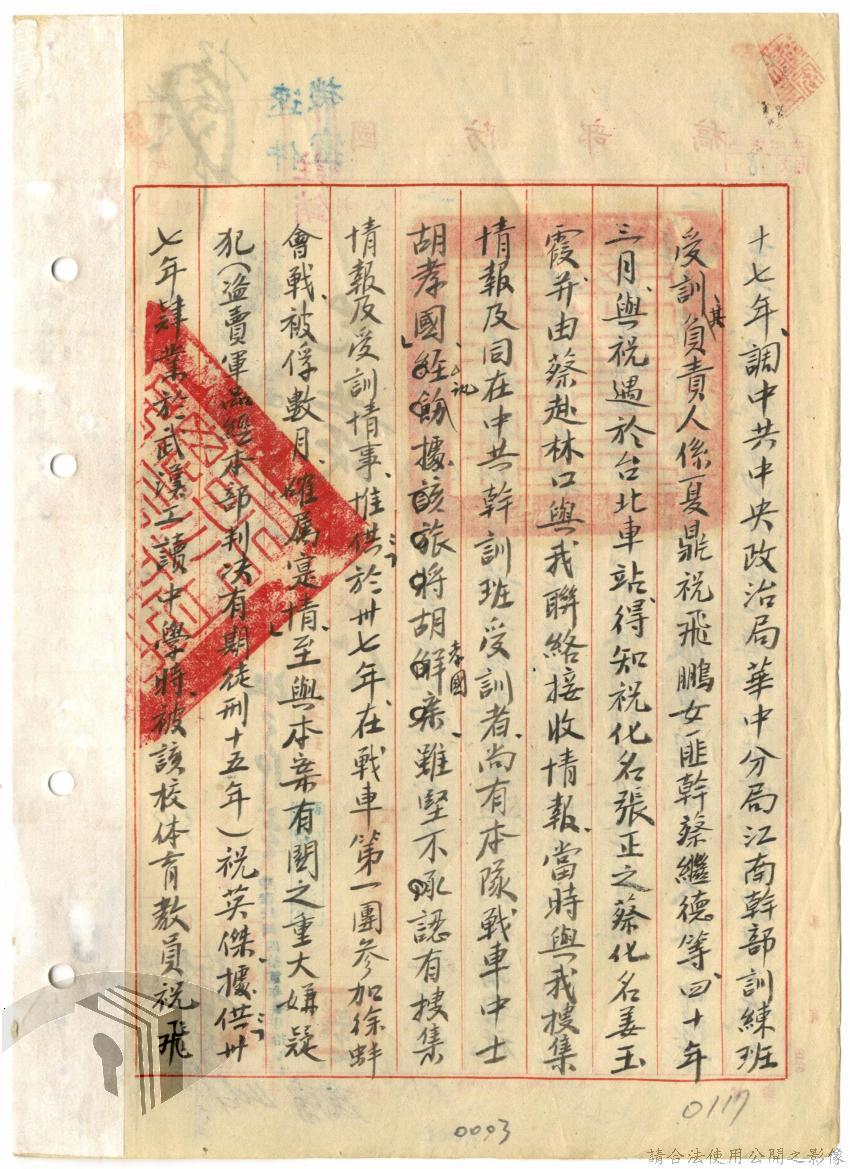 十七年、調中共中央政治局華中分局江南幹部訓練班
受訓、其負責人係夏鼎祝飛鵬女匪幹蔡繼德等、四十年
三月、與祝遇於台北車站、得知祝化名張正之蔡化名姜玉
霞、并由蔡赴林口與我聯絡接收情報、當時與我搜集
情報及同在中共幹訓班受訓者、尚有本隊戰車中士
胡孝國」經飭訊據該旅將胡孝國解案、雖堅不承認有搜集
情報及受訓情事、惟供「於卅七年、在戰車第一團參加徐蚌
會戰、被俘數月、確屬寔情」、至與本案有關之重大嫌疑
犯(盜賣軍品經本部判決有期徒刑十五年)祝英傑、據供「卅
七年肄業於武漢工讀中學時、被該校体育教員祝飛
機速
密件
國防部稿
0117
0093
請合法使用公開之影像